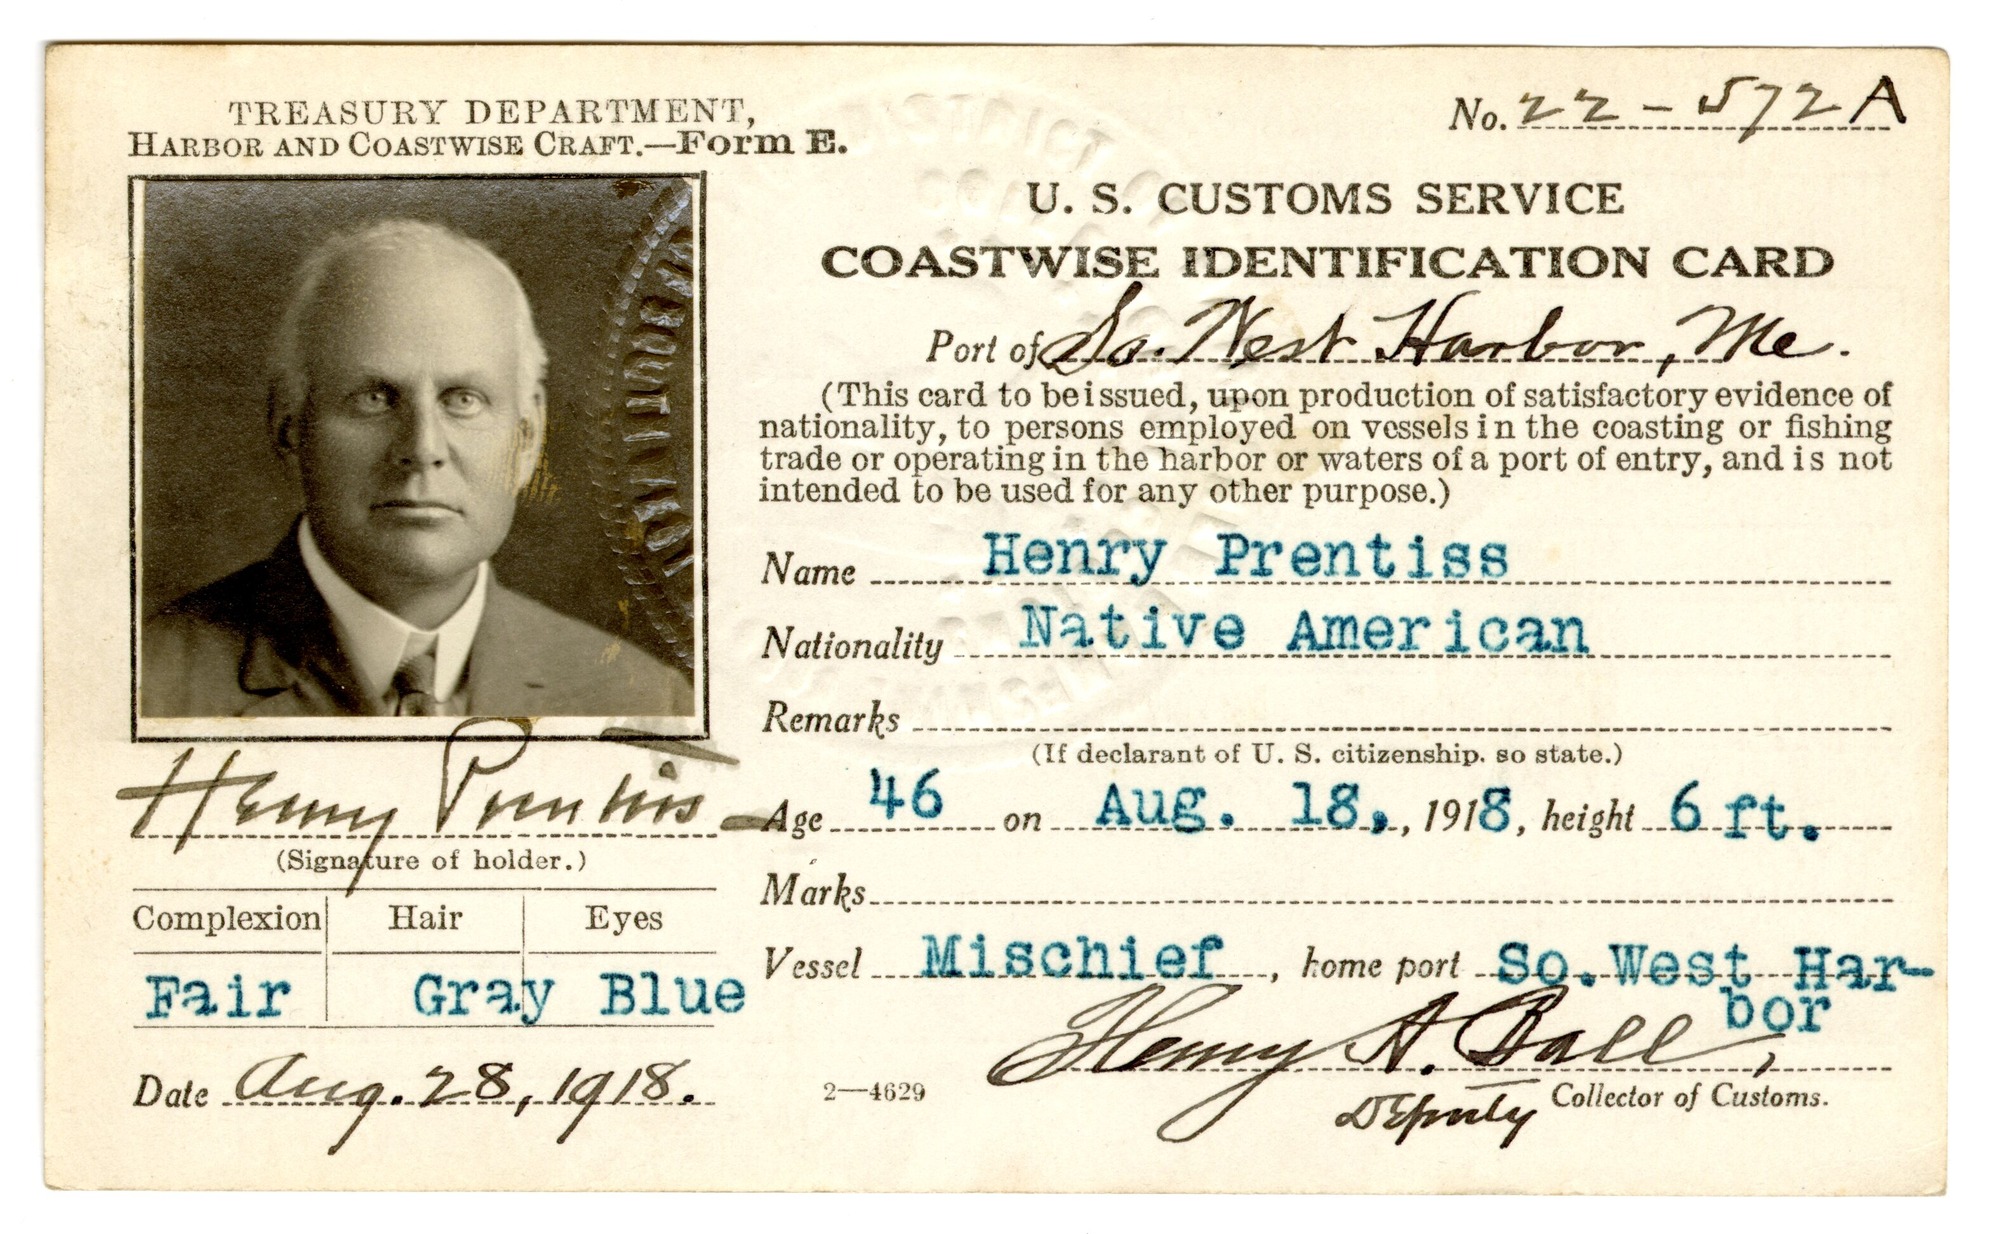 TREASURY DEPARTMENT,
HARBOR AND COASTWISE CRAFT.—Form E.
No. 22-572A
U. S. CUSTOMS SERVICE
COASTWISE IDENTIFICATION CARD
Port of So. West Harbor, Me.
(This card to be issued, upon production of satisfactory evidence of
nationality, to persons employed on vessels in the coasting or fishing
trade or operating in the harbor or waters of a port of entry, and is not
intended to be used for any other purpose.)
Name Henry Prentiss
Nationality Native American
Remarks
(If declarant of U. S. citizenship, so state.)
Age 46 on Aug. 18,, 1918, height 6 ft.
Marks
Vessel Mischief, home port So.West Har-
bor
Henry A. Ball,
Deputy Collector of Customs.
Henry Prentiss
(Signature of holder.)
Complexion Hair Eyes
Fair Gray Blue
Date Aug. 28, 1918.
2—4629